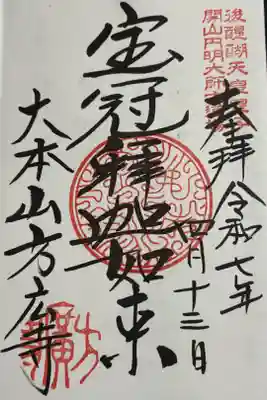 後醍醐天皇皇子
開山円明大師
奉拝
令和七年
四月十三日
宝冠釋迦如来
大本山方広寺
方廣寺